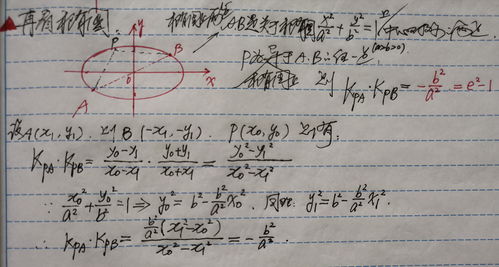 再看相似圆
AB是关于 x²/a² + y²/b² = 1 (a>b>0)
P是异于A.B.任一点
则 K_PA·K_PB = -b²/a² = e²-1
y
P
B
o
x
A
设A(x₁, y₁). 则B(-x₁, -y₁). P(x₀, y₀) 则有:
K_PA·K_PB = (y₀-y₁)/(x₀-x₁) · (y₀+y₁)/(x₀+x₁) = (y₀²-y₁²)/(x₀²-x₁²)
∵ x₀²/a² + y₀²/b² = 1 ⇒ y₀² = b² - b²/a² x₀². 同理 y₁² = b² - b²/a² x₁².
∴ K_PA·K_PB = (b²/a² (x₁²-x₀²))/(x₀²-x₁²) = -b²/a².